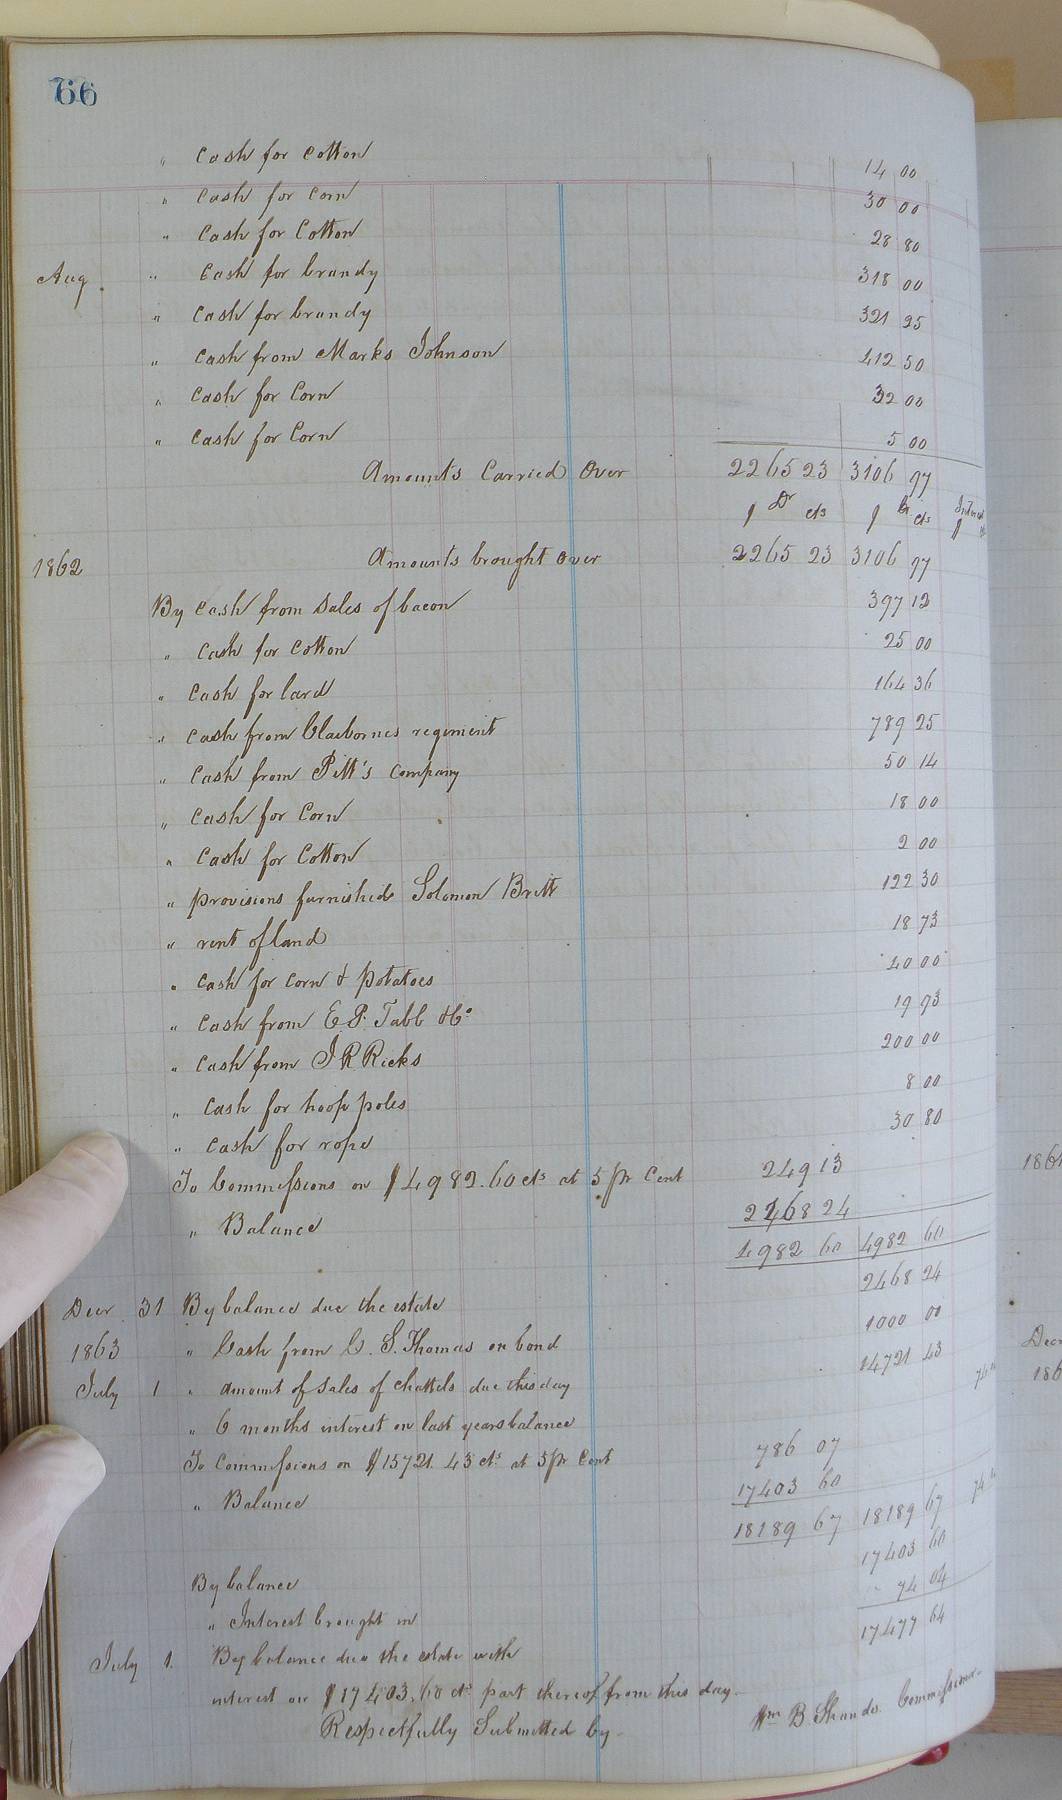 66
" Cash for cotton 14 00
" Cash for corn 30 00
" Cash for Cotton 28 80
Aug. " Cash for brandy 318 00
" Cash for brandy 321 25
" Cash from Marks Johnson 412 50
" Cash for Corn 32 00
" Cash for Corn 5 00
Amounts Carried Over 2265 23 3106 97
$ Dr cts $ Cr cts Interest $
1862 Amounts brought over 2265 23 3106 97
By Cash from sales of bacon 397 12
" Cash for cotton 25 00
" Cash for lard 164 36
" Cash from Claibornes regiment 789 25
" Cash from Pitt's Company 50 14
" Cash for Corn 18 00
" Cash for Cotton 2 00
" provisions furnished Solomon Britt 122 30
" rent of land 18 73
" Cash for corn & potatoes 40 00
" Cash from E. P. Tabb & Co 19 93
" Cash from J R Ricks 200 00
" Cash for hoop poles 8 00
" Cash for rope 30 80
To Commissions on $4982.60 cts at 5 pr Cent 249 13
" Balance 2468 24
4982 60 4982 60
Decr 31 By balance due the estate 2468 24
1863 " Cash from C. S. Thomas on bond 1000 00
July 1 " amount of sales of chattels due this day 14721 43
" 6 months interest on last years balance 74
To Commissions on $15721.43 cts at 5 pr Cent 786 07
" Balance 17403 60
18189 67 18189 67 74
By balance 17403 60
" Interest brought in 74 04
17477 64
July 1. By balance due the estate with
interest on $17403.60 cts part thereof from this day.
Respectfully Submitted by
Wm B. Shands Commissioner.
1864
Decr
186